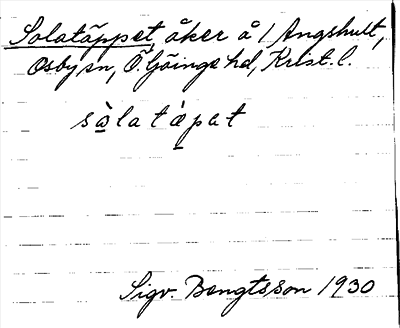 Solatäppet, åker å 1 Angshult,
Osby sn, Ö. Göinge hd, Krist. l.
sòlatæ̀pat
Sigv. Bengtsson 1930